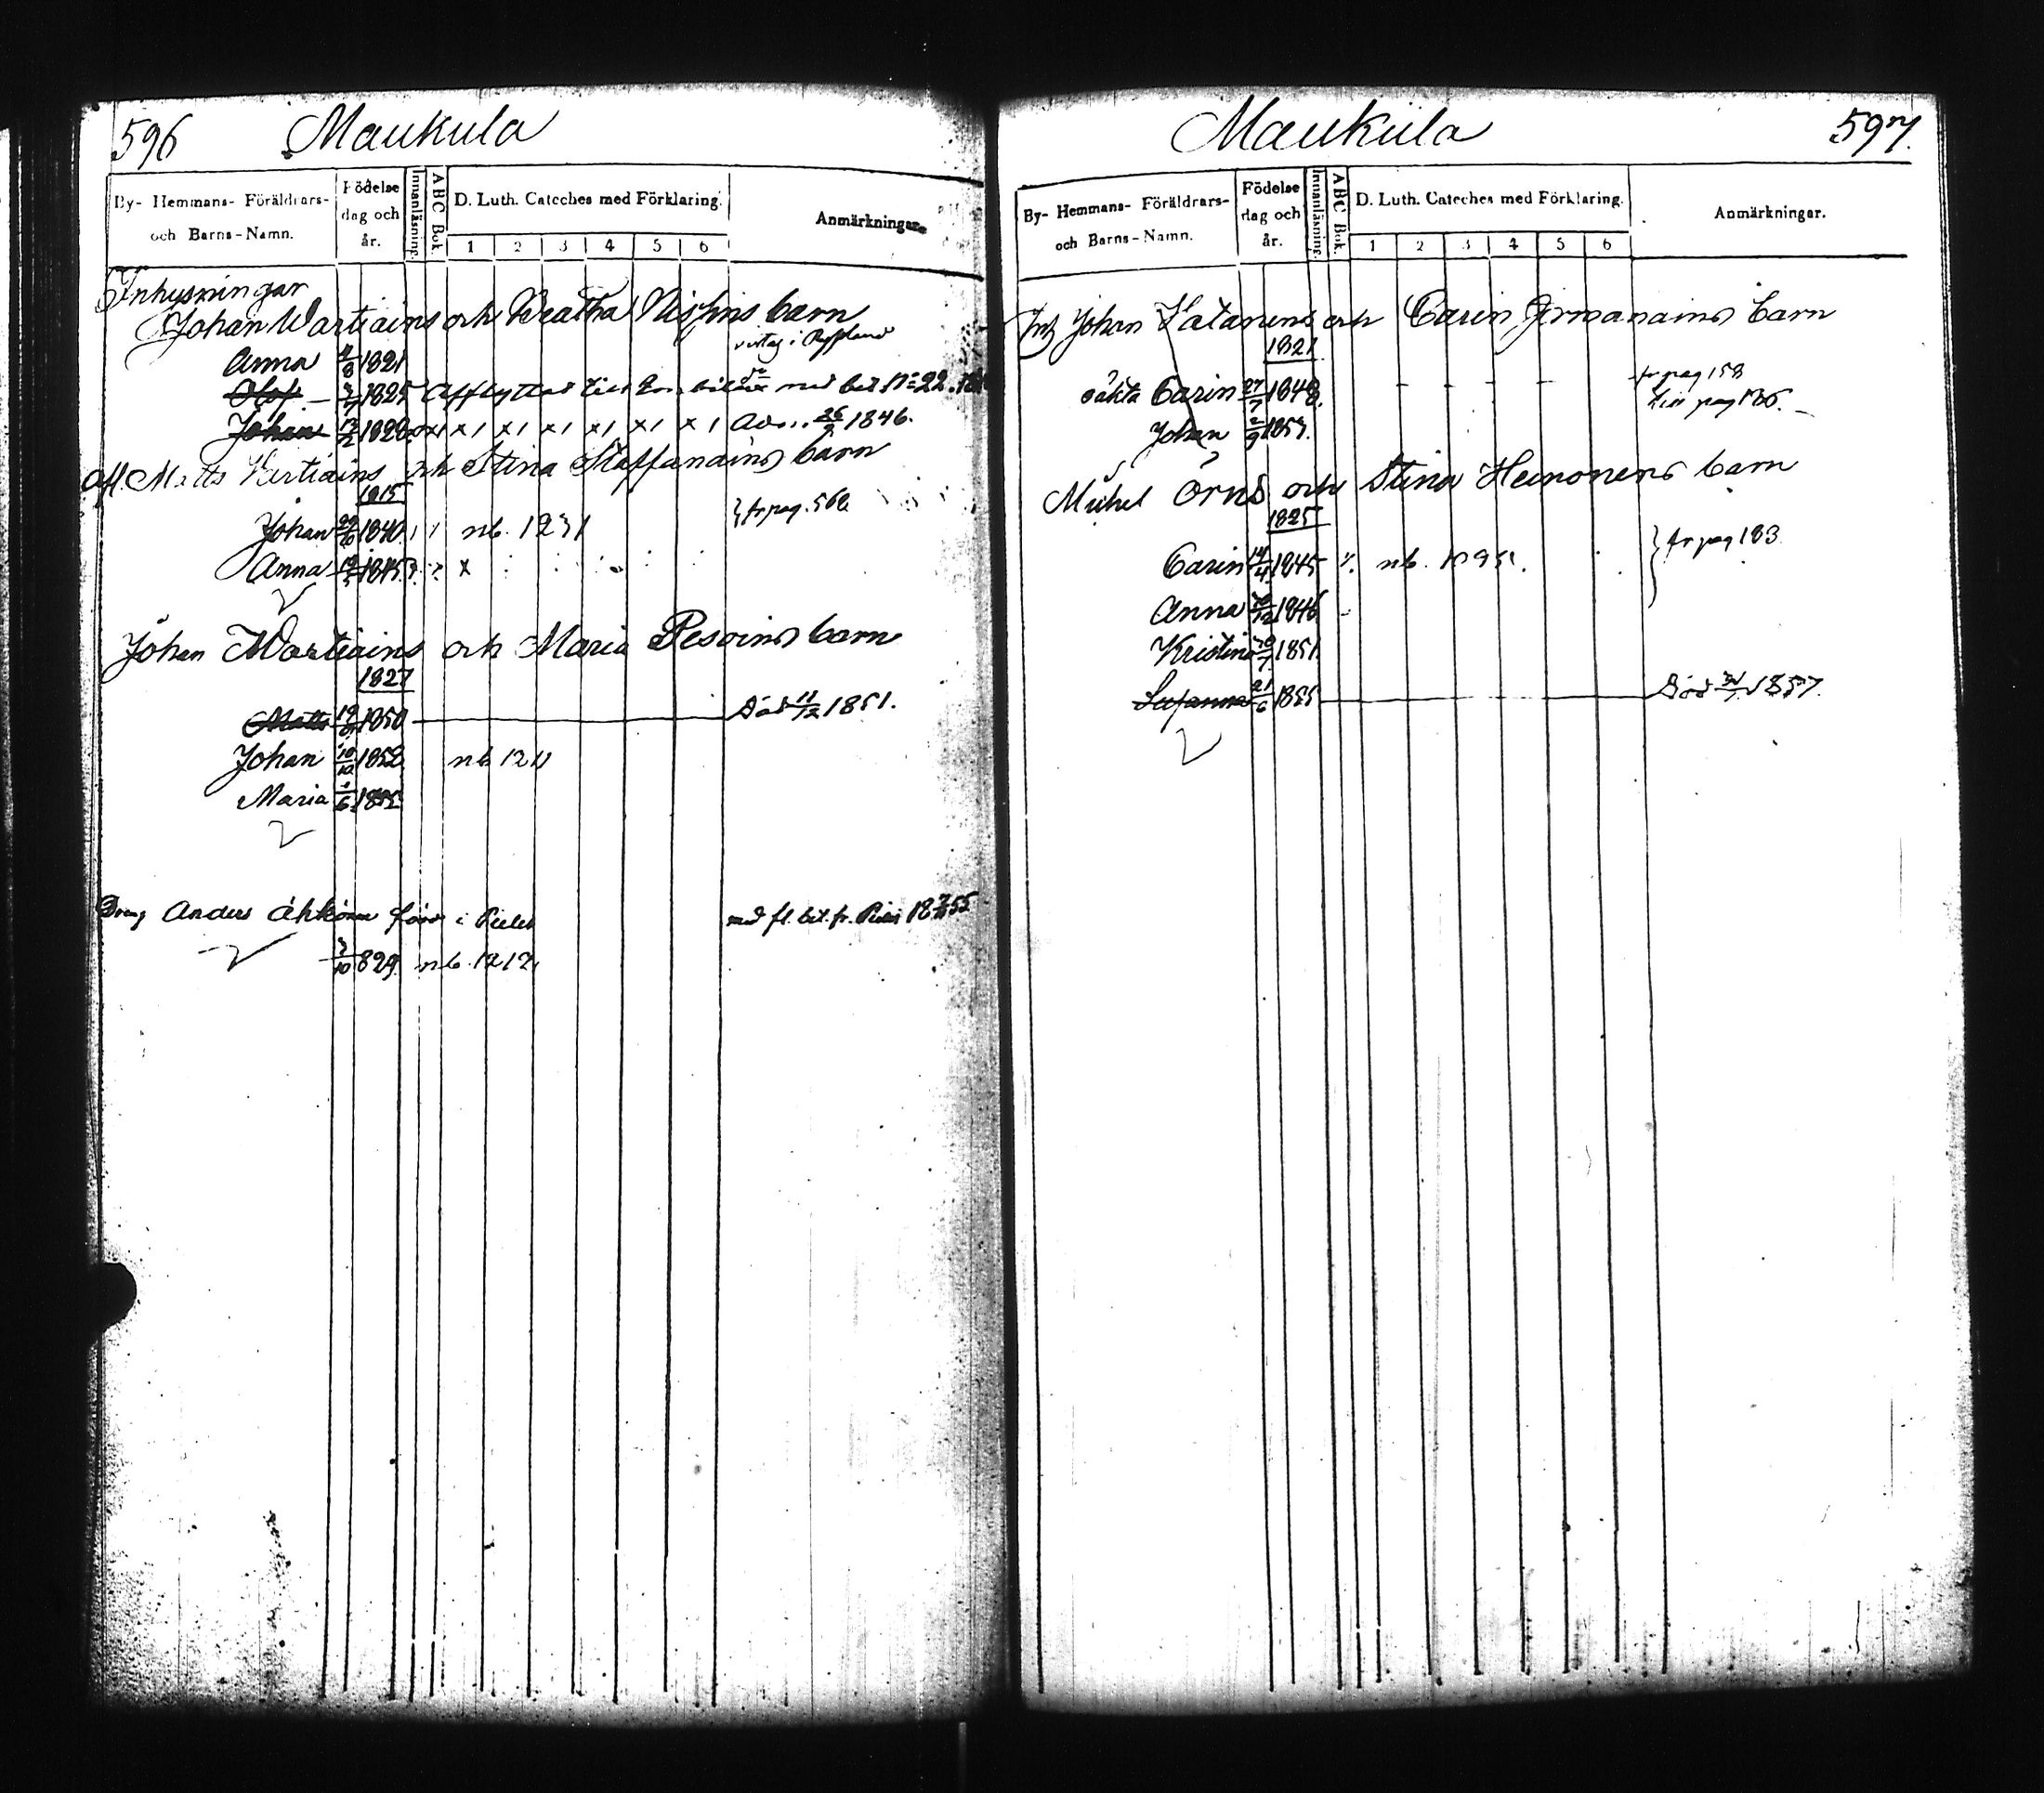 596 Maukula
By- Hemmans- Föräldrars- och Barns-Namn. Födelse dag och år. Innanläsning. ABC Bok. D. Luth. Cateches med Förklaring. Anmärkningar.
1 2 3 4 5 6
Inhysningar
Johan Wartiains och Beatha barn
vistas i Ryssland
Anna 1821
Olof 1825 Afflyttat till med bet N 22.
Johan 1828 x1 x1 x1 x1 x1 x1 x1 1846.
Matts Vartiains och Stina Staffanains barn
1815
Johan 1840 1 1 nb. 1231 fr pag. 568
Anna 1845 x
Johan Wartiains och Maria Pesoins barn
1827
Matts 1850 Död 11/12 1851.
Johan 10/10 1852 nb 121
Maria 1/6 1855
Dreng Anders Ahkönen född i Pielis med fl. bet. fr. Pielis 1855
3/10 829 nb. 1212
Maukula 597.
By- Hemmans- Föräldrars- och Barns-Namn. Födelse dag och år. Innanläsning. ABC Bok. D. Luth. Cateches med Förklaring. Anmärkningar.
1 2 3 4 5 6
Inh Johan Vatanens och Carin Jirmanains barn
1821
oäkta Carin 27/7 1848. - - - - fr pag 158
till pag 186.
Johan 2/9 1853.
Michel Örns och Stina Heinonens barn
1825
Carin 14/4 1845 nb. fr pag 183
Anna 1846
Kristina 1851.
Susanna 21/6 1855 Död 1857.